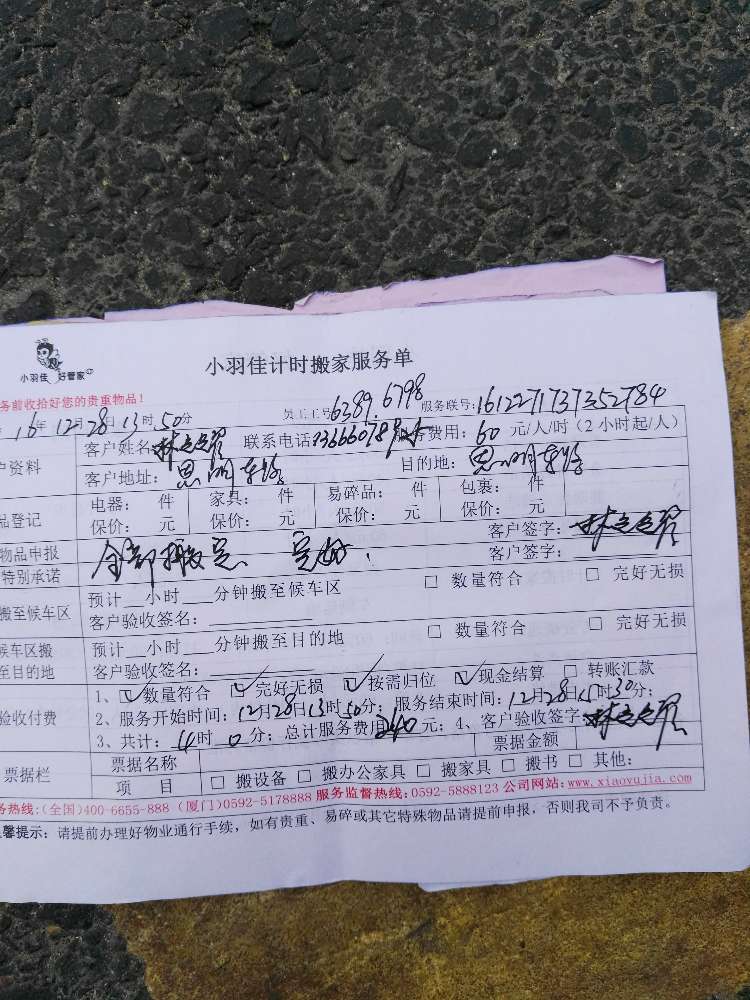 小羽佳 好管家
小羽佳计时搬家服务单
务前收拾好您的贵重物品!
16年12月28日13时50分 员工工号6389.6798 服务联号:
户资料 客户姓名 联系电话 务费用: 60 元/人/时(2小时起/人)
客户地址: 思明东路 目的地: 思明东路
品登记 电器: 件 家具: 件 易碎品: 件 包裹: 件
保价: 元 保价: 元 保价: 元 保价: 元
物品申报 全部搬完 完好. 客户签字:
特别承诺 客户签字:
搬至候车区 预计 小时 分钟搬至候车区 □ 数量符合 □ 完好无损
客户验收签名:
候车区搬 预计 小时 分钟搬至目的地 □ 数量符合 □ 完好无损
至目的地 客户验收签名:
验收付费 1、☑数量符合 ☑完好无损 ☑按需归位 ☑现金结算 □ 转账汇款
2、服务开始时间: 12月28日13时50分; 服务结束时间: 12月28日15时30分;
3、共计: 4时 0分; 总计服务费用240元; 4、客户验收签字
票据栏 票据名称 票据金额
项 目 □ 搬设备 □ 搬办公家具 □ 搬家具 □ 搬书 □ 其他:
务热线:(全国)400-6655-888 (厦门)0592-5178888 服务监督热线:0592-5888123 公司网站:www.xiaoyujia.com
馨提示: 请提前办理好物业通行手续, 如有贵重、易碎或其它特殊物品请提前申报, 否则我司不予负责。